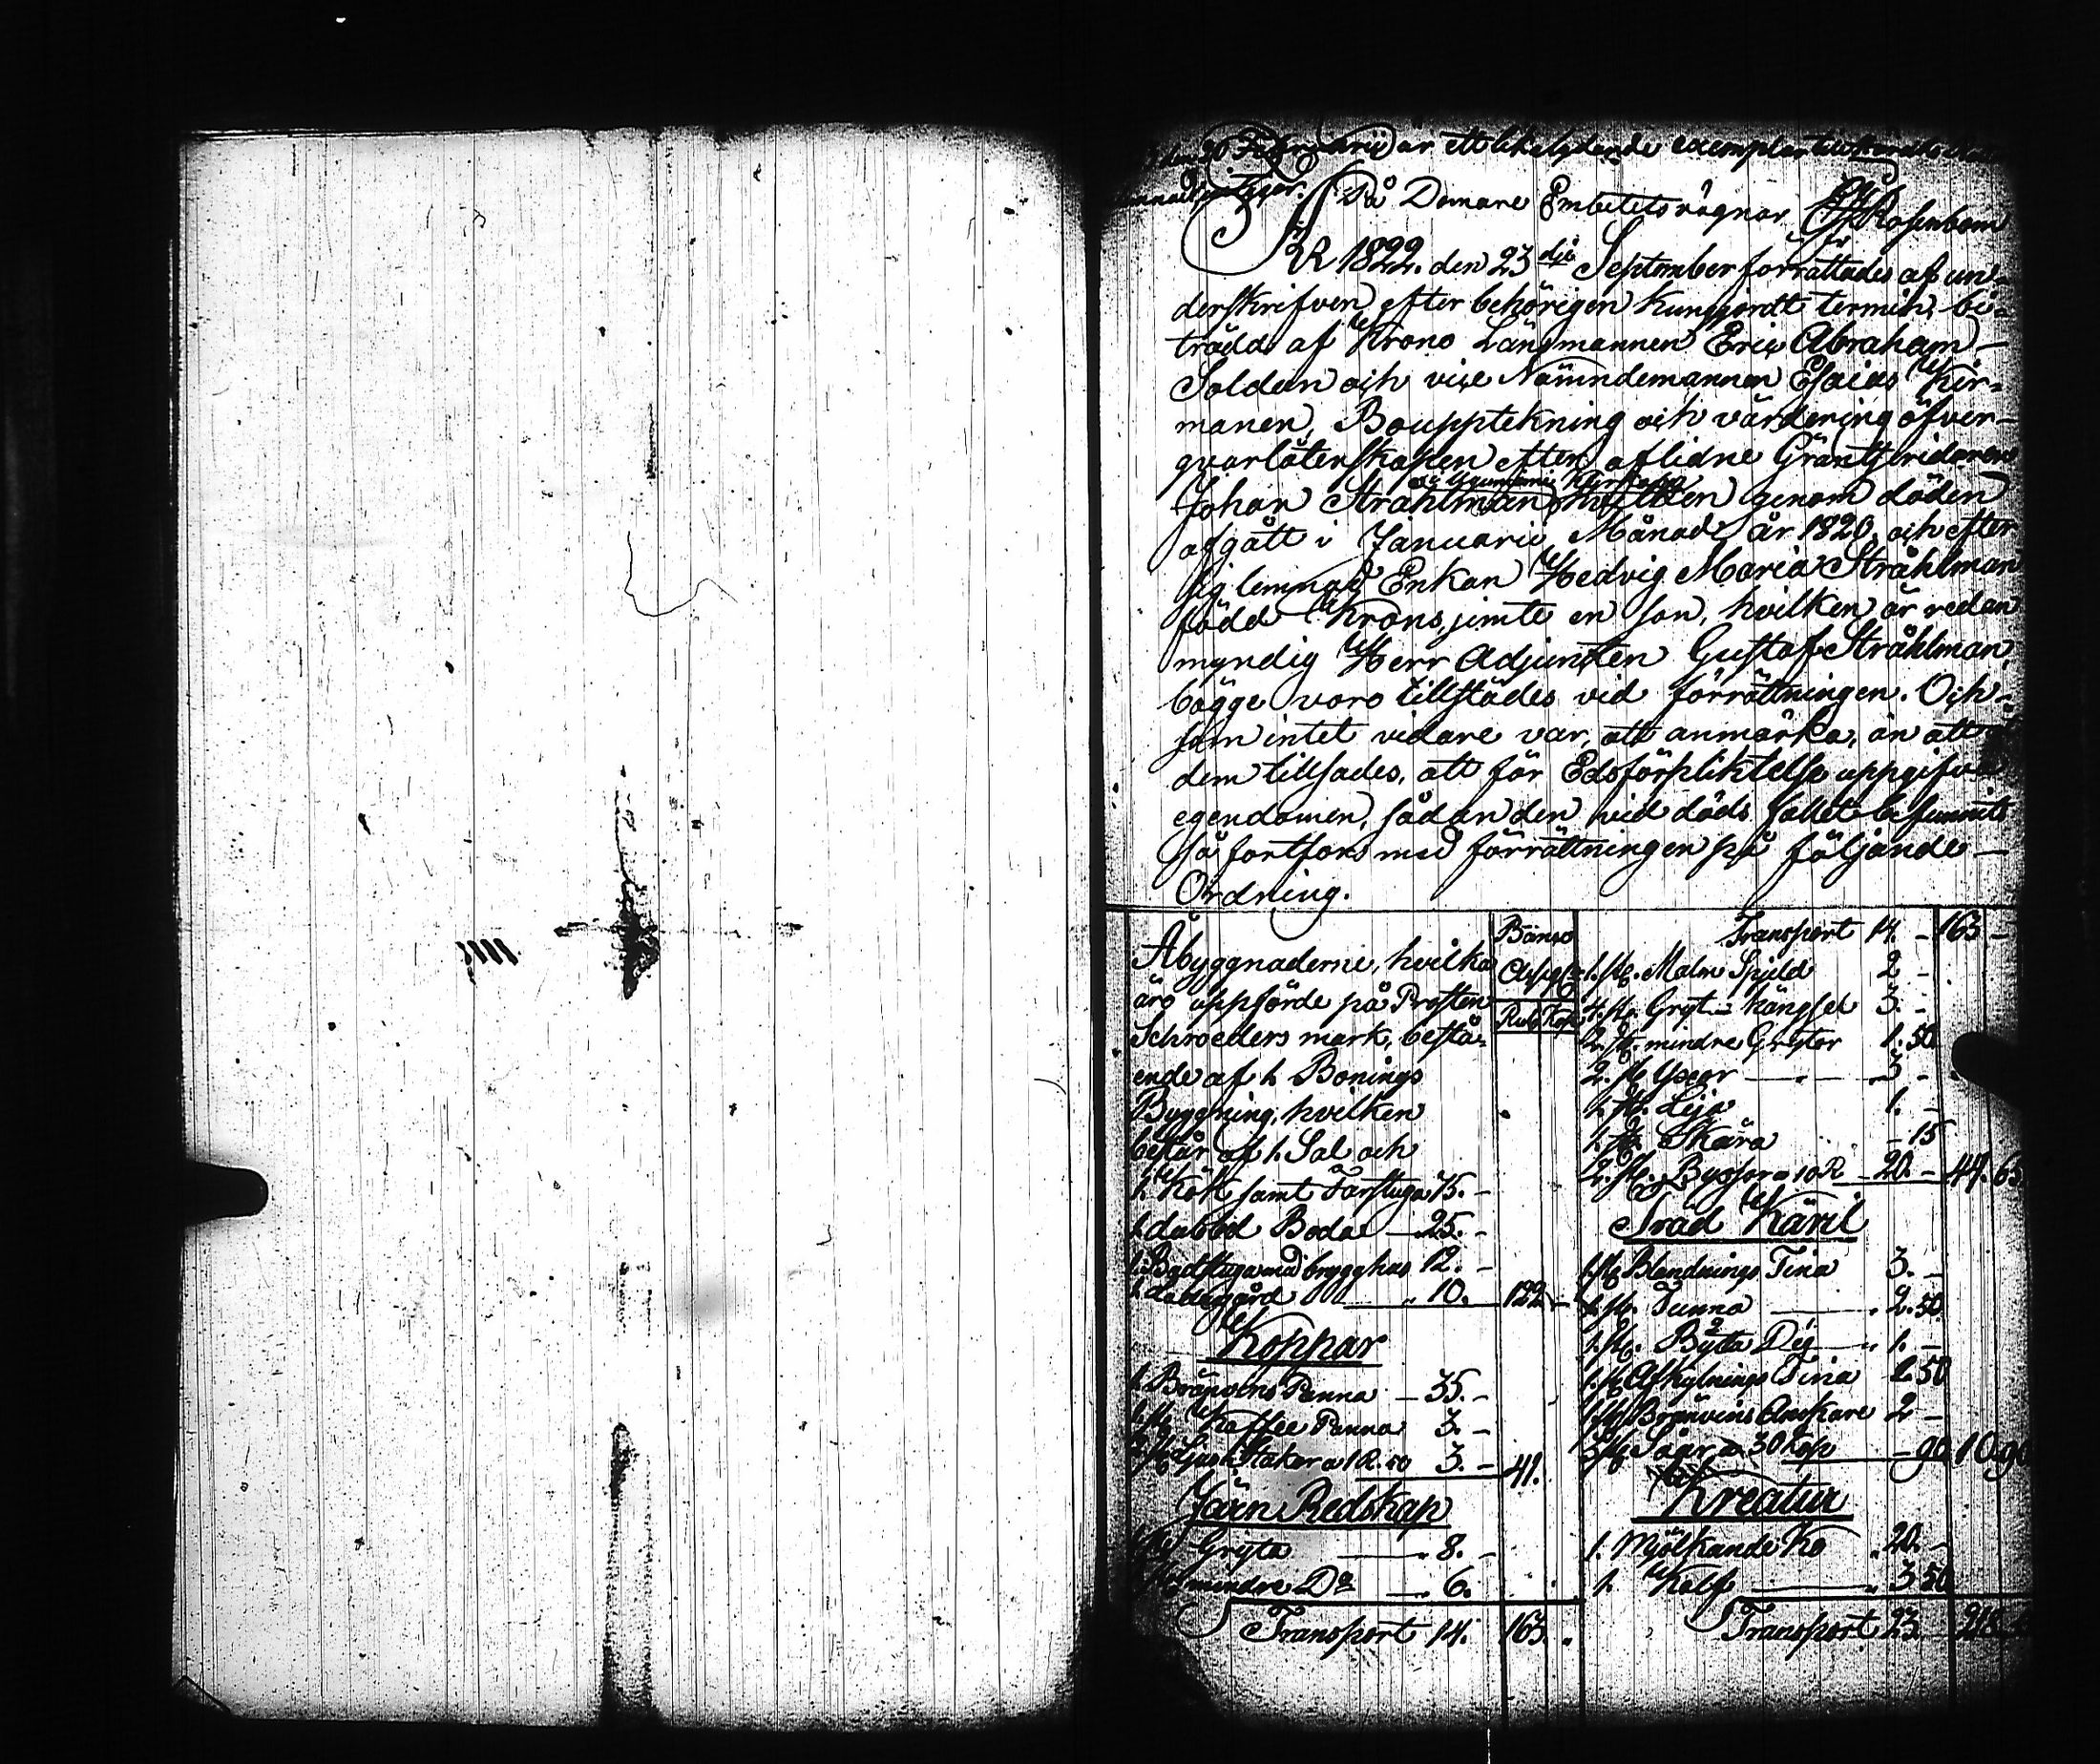 den 20 Februarii är ett likelydande exemplar
På Domare Embetets vägnar Rosenbom
ÅR 1822. den 23dje September förrättades af un-
derskrifven efter behörigen kungjordt termin, bi-
trädd af Krono Länsmannen Eric Abraham
Soldan och vice Nämndemannen Esaias Kir-
manen, Bouppteckning och värdering öfver
qvarlåtenskapen efter aflidne Gräntzridaren
Johan Stråhlman genom döden
afgått i Januarii Månad år 1820, och efter
sig lemnad Enkan Hedvig Maria Stråhlman
född Krons, jemte en son, hvilken är redan
myndig Herr Adjuncten Gustaf Stråhlman,
bägge voro tillstädes vid förrättningen. Och
som intet vidare var att anmärka, än att
dem tillsades, att för Edsförpliktelse uppgifva
egendomen, sådan den vid döds fallet befunnits
så fortfors med förrättningen på följande
Ordning.
Åbyggnaderne, hvilka
äro uppförde på Prosten
Schroeders mark, bestå-
ende af 1. Bonings
Byggning, hvilken
består af 1. Sal och
1. Kök samt Farstuga 75. -
1. dubbel Boda 25. -
1. Badstuga med brygghus 12. -
1. Ladugård 10. 122 -
Koppar
1. Bränvins Panna 35. -
1. st. Kaffee Panna 3. -
2 st. Ljus Stakar a 1 R. 50 3. - 41.
Järn Redskap
1 st Gryta 8. -
1 st. mindre Do 6.
Transport 14. 163.
Rub. Kop.
Transport 14. - 163 -
1. st. Malm Spjeld 2 -
4. st. Gryt-hängsel 3. -
2. st. mindre Grytor 1. 50.
2. st Yxor 3 -
1. st. Lija 1. -
1. st. Skära - 15
2. st. Byssor a 10 R 20. - 44. 65
Träd Käril
1 st Blandnings Tina 3. -
1. st. Tunna 2. 50
1. st. Byta Deg 1. -
1. st Afkylnings Tina 1. 50
1 st Bränvins Anskare 2 -
3 st Såar a 30 Kop - 90 10. 90
Kreatur
1. Mjölkande Ko 20. -
1. Kalf 3 50
Transport 23. 218.